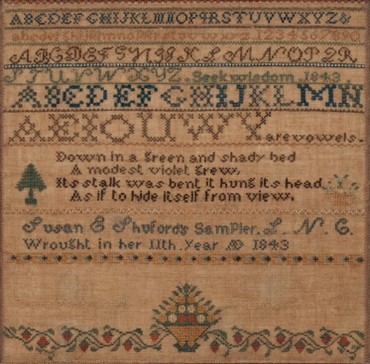 ABCDEFGHIJKLMNOPQRSTUVWXYZ&
abcdefghijklmnopqrstuvwxyz.1234567890
ABCDEFGHIJKLMNOPQR
STUVWXYZ. Seek wisdom. 1843
ABCDEFGHIJKLMN
AEIOUWY are vowels.
Down in a green and shady bed
A modest violet grew,
Its stalk was bent it hung its head,
As if to hide itself from view.
Susan E Shuford's Sampler. L. N. C.
Wrought in her 11th. Year AD 1843